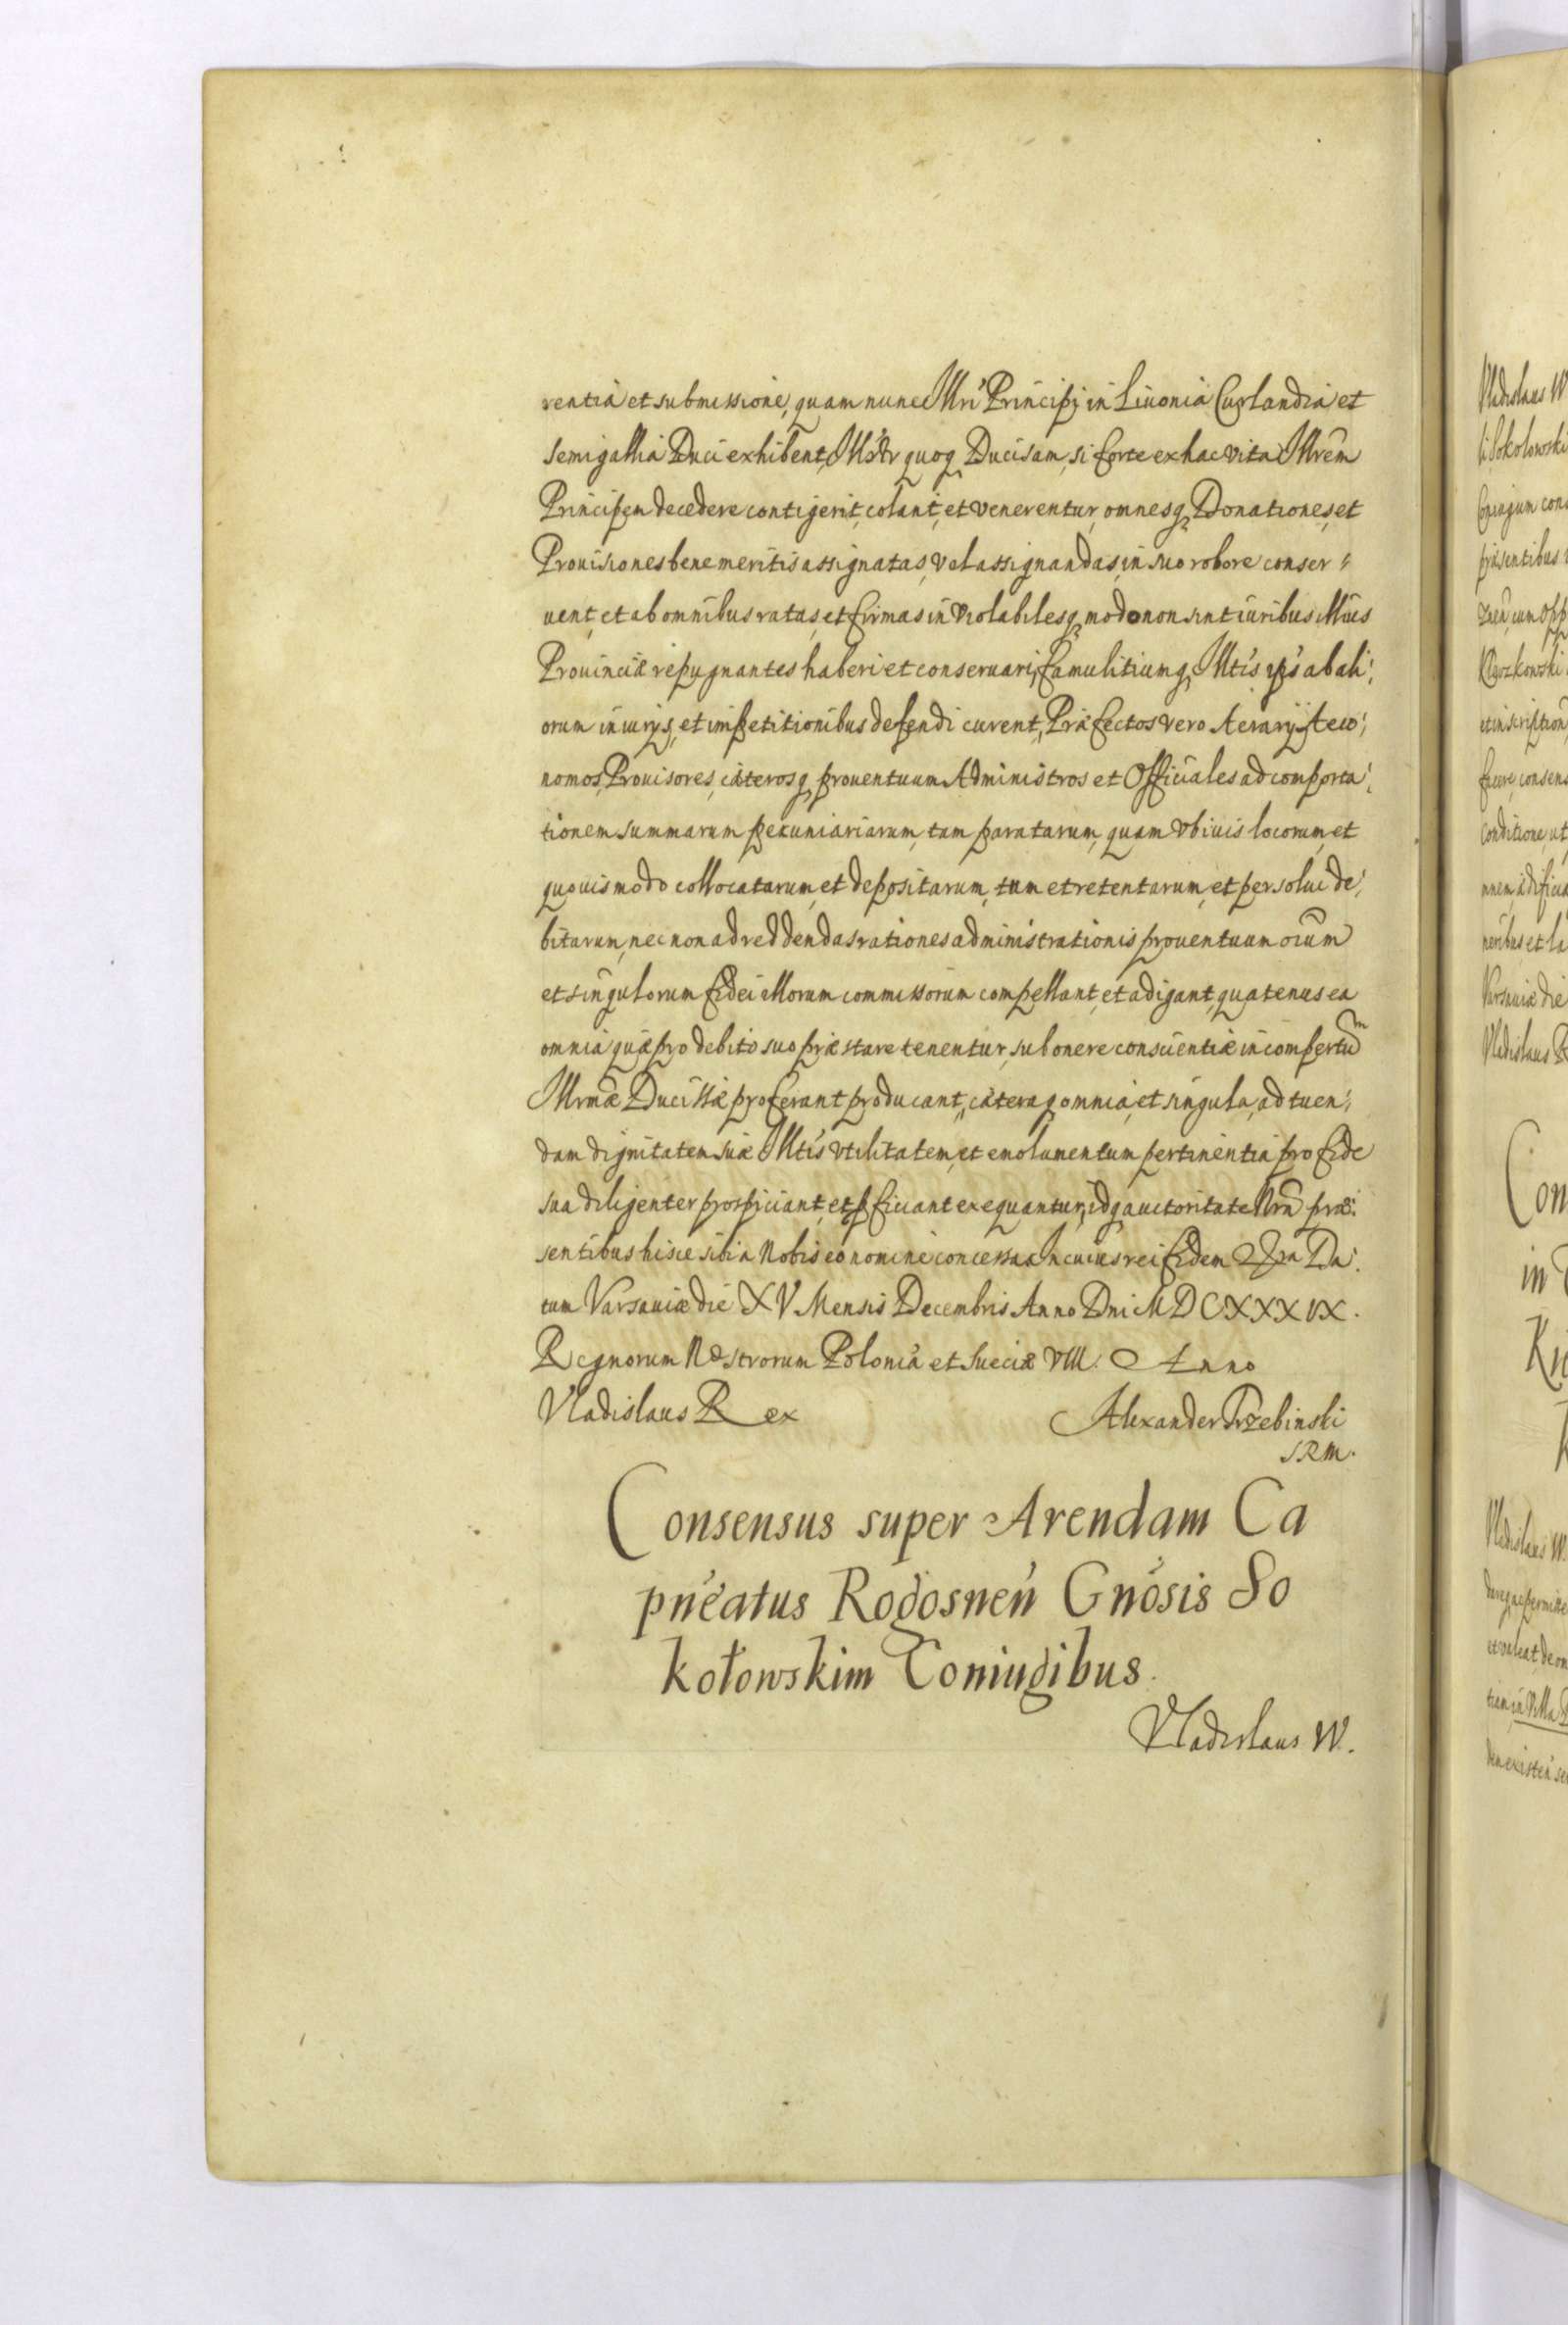 rentia et submissione, quam nunc Illri Principi in Liuonia Curlandia et
Semigallia Duci exhibent, Illrē quoq Ducisam, si forte ex hac vita Illrem
Principem decedere contigerit, colant, et venerentur, omnesq Donationes, et
Prouisiones bene meritis assignatas, vel assignandas, in suo robore conser,
uent, et ab omnibus ratas, et firmas inviolabilesq modo non sint iuribus illius
Prouinciæ repugnantes haberi et conseruari, famulitiumq Illtis ipsˢ ab ali,
orum iniurijs, et impetitionibus defendi curent, Præfectos vero Aerarij Aeco,
nomos, Prouisores, cæterosq prouentuum Administros et Officiales ad comporta,
tionem summarum pecuniariarum, tam paratarum, quam vbiuis locorum, et
quouismodo collocatarum, et depositarum, tum et retentarum, et persolui de,
bitarum, nec non ad reddendas rationes administrationis prouentuum oium
et singulorum fidei illorum commissorum compellant, et adigant, quatenus ea
omnia quæ pro debito suo præstare tenentur, sub onere conscientiæ in compertum
Illrmæ Ducissæ proferant producant, cæteraq omnia, et singula, ad tuen,
dam dignitatem suæ Illtis vtilitatem, et emolumentum pertinentia pro fide
sua diligenter prospiciant, et pficiant exequantur, idq auctoritate Nrā præ,
sentibus hisce sibi a Nobis eo nomine concessa. In cuius rei fidem Da,
tum Varsauiæ die XV Mensis Decembris Anno Dni MDCXXXIX.
Regnorum Nostrorum Poloniæ et Sueciæ VIII. Anno
Vladislaus Rex Alexander Trzebinski
SRM.
Consensus super Arendam Ca
pneatus Rogosnen Gnosis So
kołowskim Coniugibus.
Vladislaus W.
Vladislaus W
li Sokolowski
Coniugum cons
præsentibus
cum opp
et inscription
facere, consens
conditione ut
Varsauiæ die
Vladislaus R
Con
in
Vladislaus W.
et valeat de om
tiam in Villa